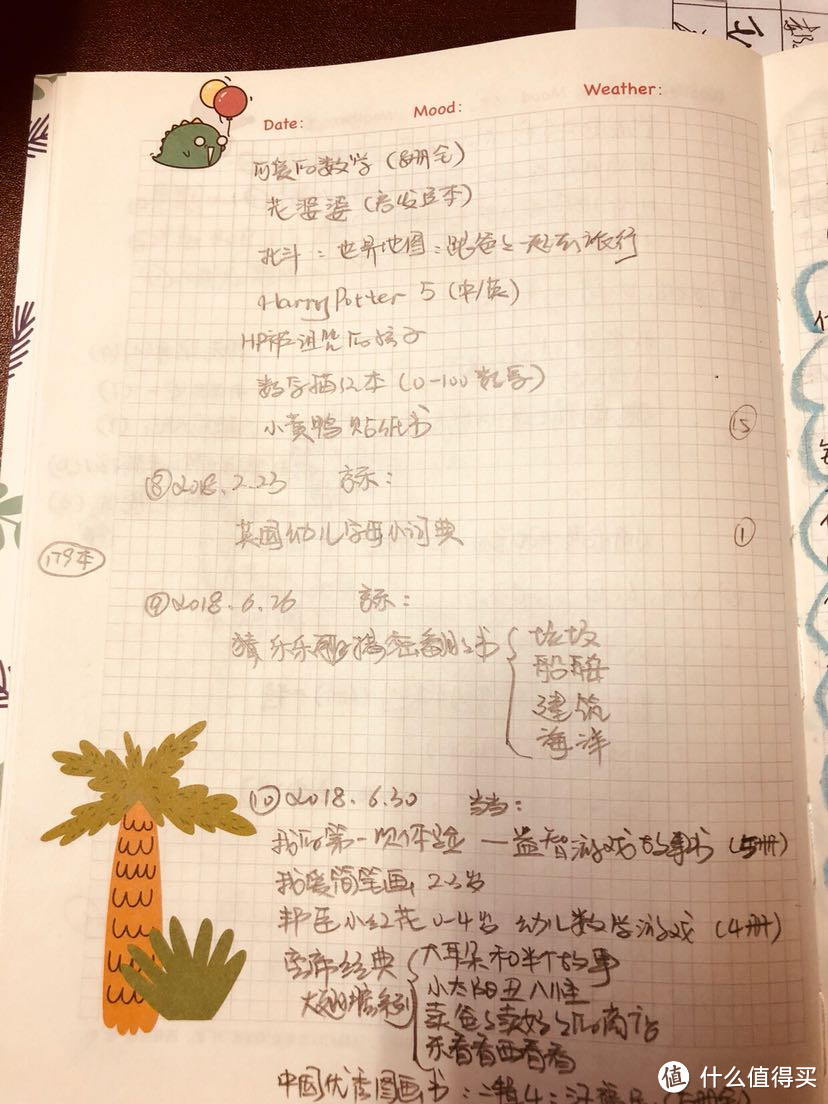 Date: Mood: Weather:
可爱的数学（8册全）
花婆婆（启发豆本）
北斗：世界地图：跟爸爸一起去旅行
Harry Potter 5（中/英）
HP被诅咒的孩子
数字描红本（0-100数字）
小黄鸭贴纸书 ⑮
⑧2018.2.23 京东：
英国幼儿字母小词典 ①
179本
⑨2018.6.26 京东：
乐乐趣揭秘翻翻书
垃圾
船艇
建筑
海洋
⑩2018.6.30 当当：
我的第一次体验—益智游戏故事书（5册）
我爱简笔画 2-3岁
邦臣小红花 0-4岁 幼儿数学游戏（4册）
经典
系列
大耳朵和半个故事
小太阳丑八怪
卖爸爸卖妈妈的商店
东看看西看看
中国优秀图画书：
值 什么值得买